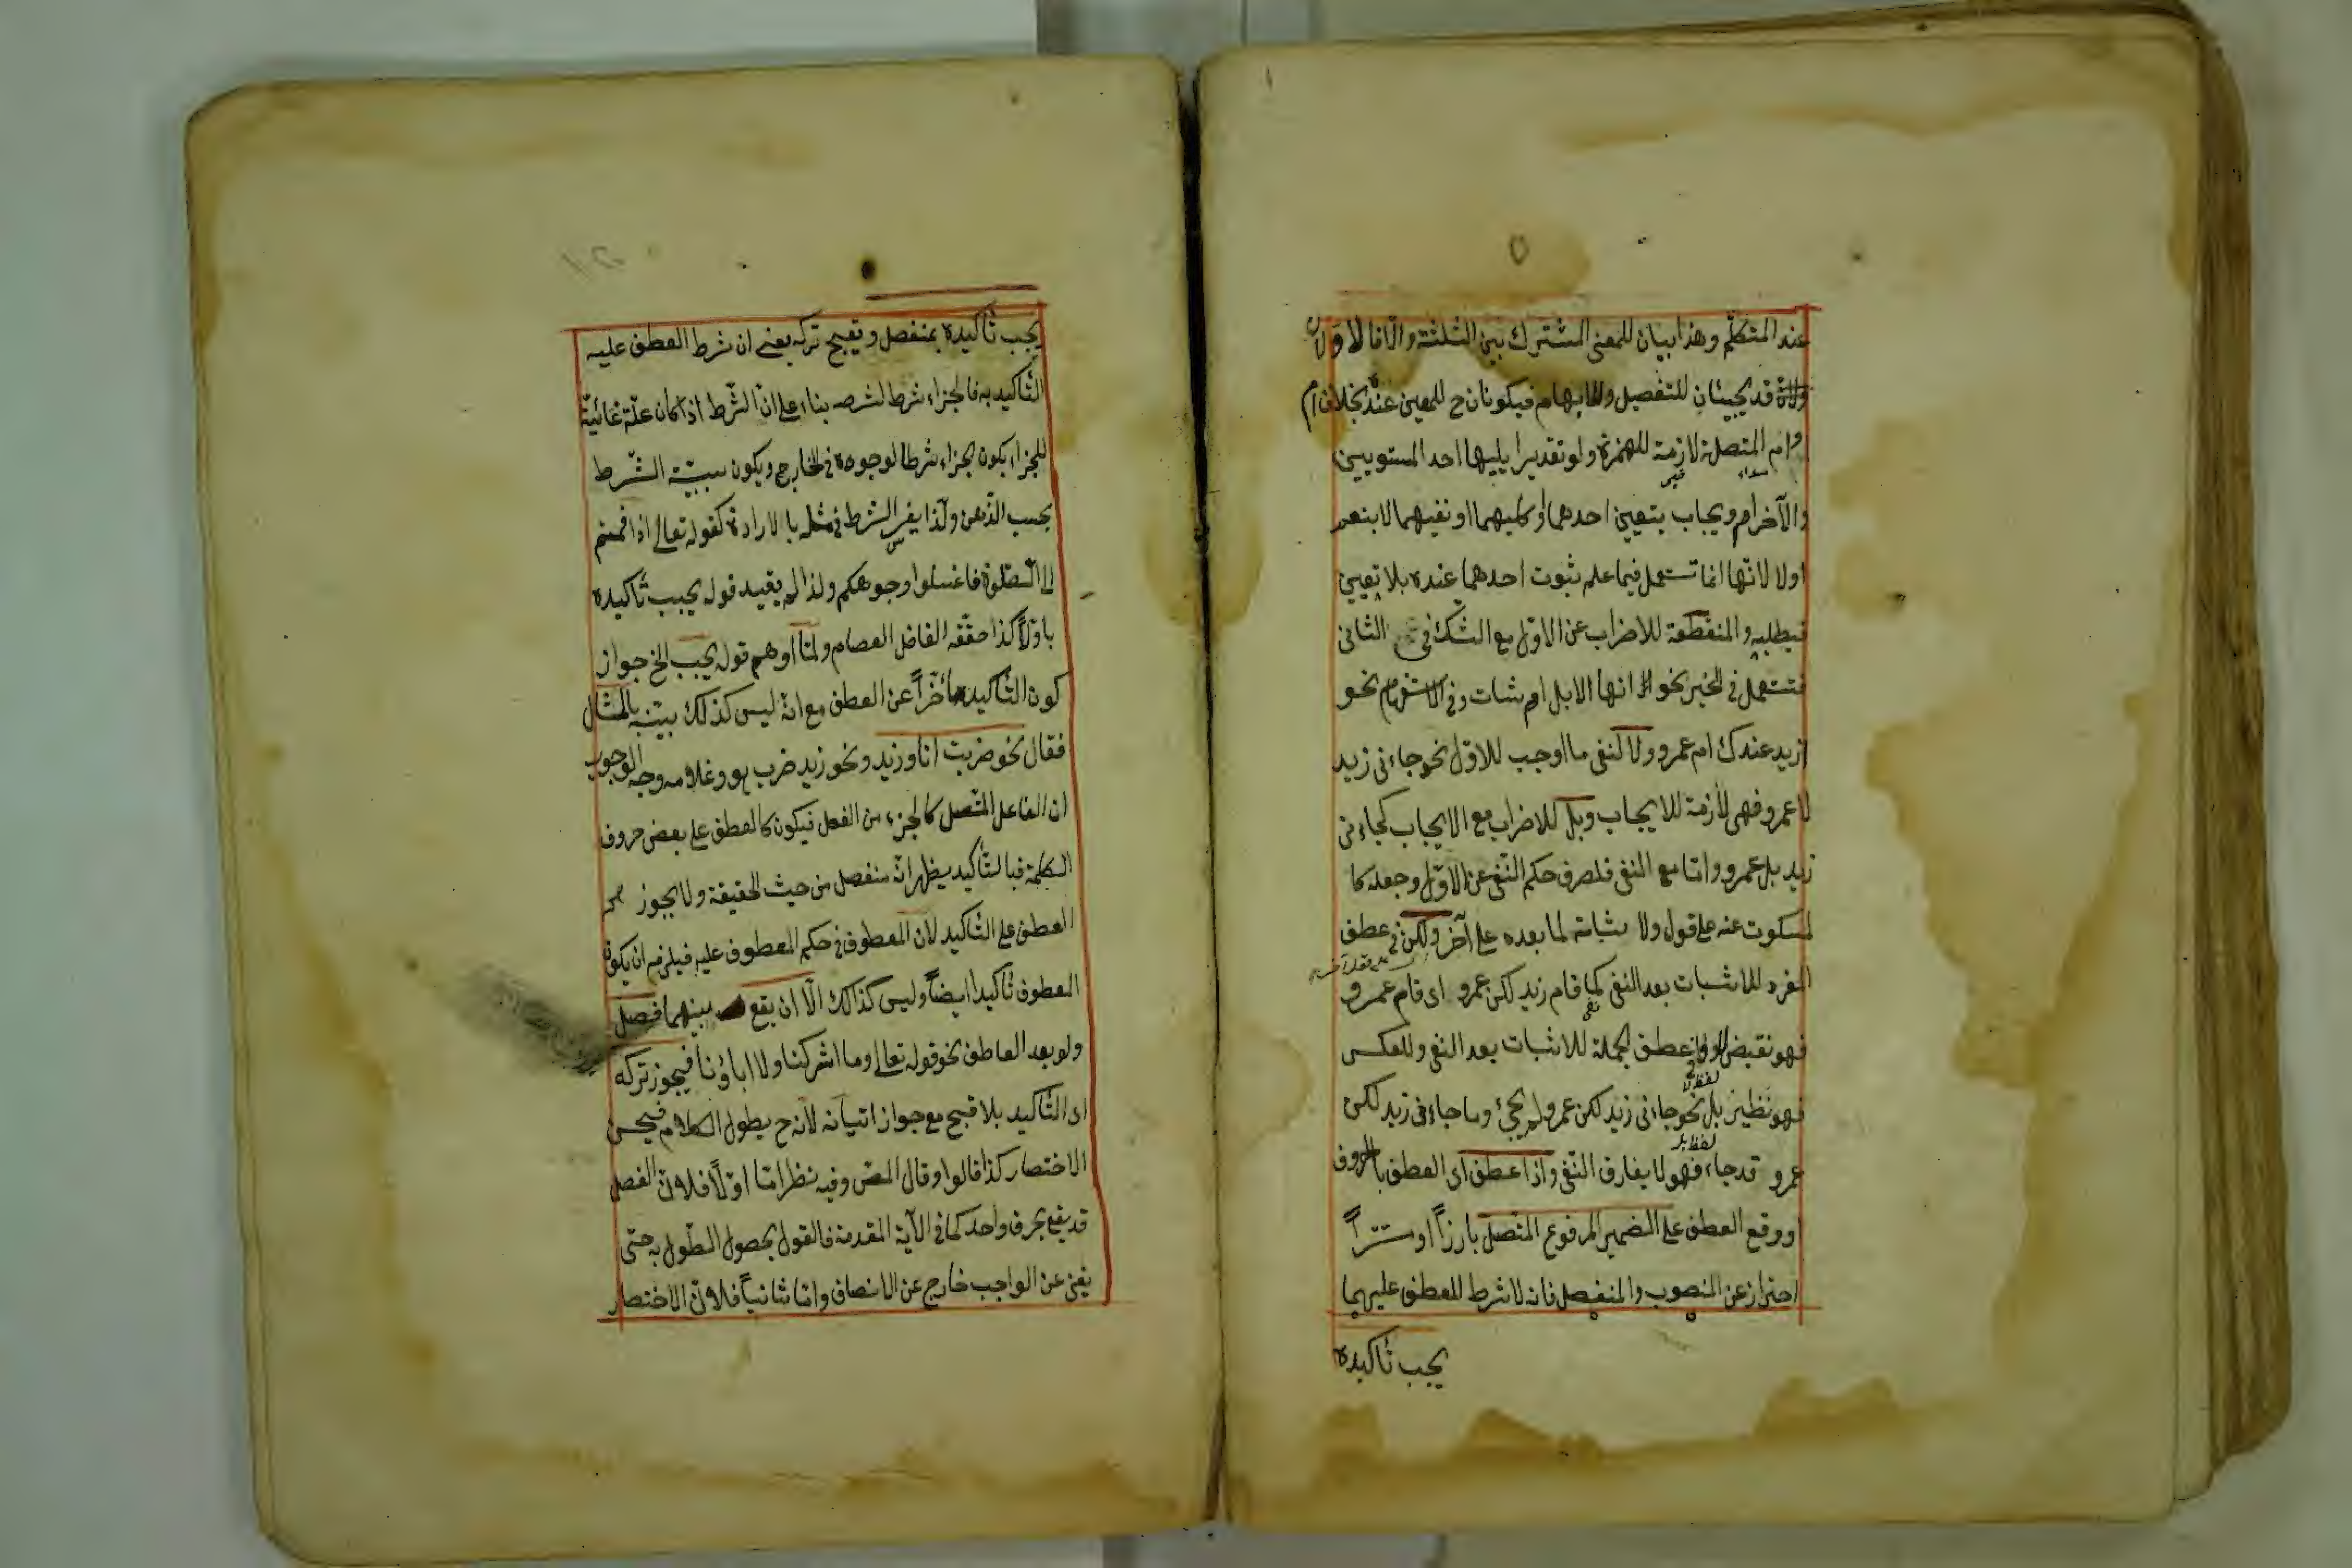 عند المتكلم وهذا بيان للمعنى المشترك بين الثلثة والا فالاولان
قد يجيئان للتفصيل والابهام فيكونان ح للمعين عنده بخلاف ام
وام المتصلة لازمة للهمزة ولو تقديرا يليها احد المستويين
والآخر ام ويجاب بتعيين احدهما او كليهما او نفيهما لا بنعم
اولا لانها انما تستعمل فيما علم ثبوت احدهما عنده بلا تعيين
فيطلبه والمنقطعة للاضراب عن الاول مع الشك في الثانى
فتستعمل في الخبر نحو انها الابل ام شات وفي الاستفهام نحو
ازيد عندك ام عمرو ولا لنفى ما اوجب للاول نحو جاءنى زيد
لا عمرو فهى لازمة للايجاب وبل للاضراب مع الايجاب كجاءنى
زيد بل عمرو واما مع النفى فلصرف حكم النفى عن الاول وجعله كا
لمسكوت عنه على قول ولا ثباته لما بعده على آخر ولكن في عطف
المفرد للاثبات بعد النفى كما قام زيد لكن عمرو اى قام عمرو
فهو نقيض لا وفي عطف الجملة للاثبات بعد النفى وللعكس
لفظ لا
فهو نظير بل نحو جاءنى زيد لكن عمرو لم يجئ وما جاءنى زيد لكن
لفظ بل
عمرو قد جاء فهو لا يفارق النفى واذا عطف اى العطف بالحروف
اووقع العطف على الضمير المرفوع المتصل بارزاً او مستتراً
احتراز عن المنصوب والمنفصل فانه لا شرط للعطف عليهما
يجب تأكيده
يجب تأكيده بمنفصل ويقبح تركه يعنى ان شرط العطف عليه
التأكيد به فالجزاء شرط لشرطه بناء على ان الشرط اذا كان علة غائية
للجزاء يكون الجزاء شرطا لوجوده في الخارج ويكون سببية الشرط
بحسب الذهن ولذا يفسر الشرط في مثله بالارادة كقوله تعالى اذا قمتم
الى الصلوة فاغسلوا وجوهكم ولذا لم يقيد قوله يجب تأكيده
باولاً كذا حققه الفاضل العصام ولما اوهم قوله يجب الخ جواز
كون التأكيد متأخراً عن العطف مع انه ليس كذلك بينه بالمثال
فقال نحو ضربت انا وزيد ونحو زيد ضرب هو وغلامه وجه الوجوب
ان الفاعل المتصل كالجزء من الفعل فيكون كالعطف على بعض حروف
الكلمة فبالتأكيد يظهر انه منفصل من حيث الحقيقة ولا يجوز
العطف على التأكيد لان المعطوف في حكم المعطوف عليه فيلزم ان يكون
المعطوف تأكيدا ايضاً وليس كذلك الا ان يقع بينهما فصل
ولو بعد العاطف نحو قوله تعالى وما اشركنا ولا اباؤنا فيجوز تركه
اى التأكيد بلا قبح مع جواز اتيانه لانه ح يطول الكلام فيحسن
الاختصار كذا قالوا وقال المص وفيه نظر اما اولاً فلان الفصل
قد يقع بحرف واحد كما في الآية المقدمة فالقول بحصول الطول به حتى
يغنى عن الواجب خارج عن الانصاف واما ثانياً فلان الاختصار